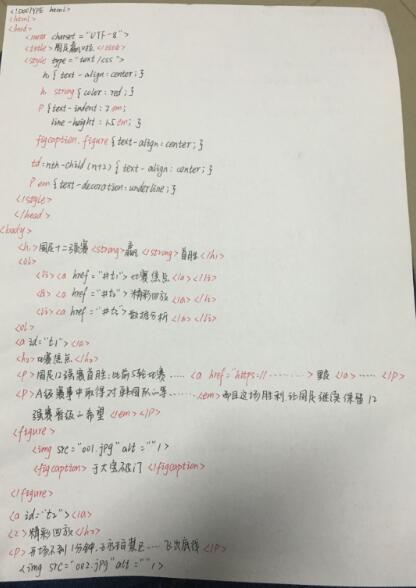 <!DOCTYPE html>
<html>
<head>
<meta charset="UTF-8">
<title>国足赢球</title>
<style type="text/css">
h1 {text-align:center;}
h1 strong {color:red;}
P {text-indent:2em;
line-height:1.5em;}
figcaption.figure {text-align:center;}
td=nth-child(n+2) {text-align:center;}
P em {text-decoration:underline;}
</style>
</head>
<body>
<h1>国足十二强赛<strong>赢</strong>首胜</h1>
<ol>
<li><a href="#t1">比赛焦点</a></li>
<li><a href="#t2">精彩回放</a></li>
<li><a href="#t3">数据分析</a></li>
<ol>
<a id="t1"></a>
<h2>比赛焦点</h2>
<P>国足12强赛首胜:此前5轮比赛……<a href="https://………"></a>……</P>
<P>A级赛事中取得对韩国队……<em>而且这场胜利让国足继续保留12
强赛晋级希望</em></P>
<figure>
<img src="001.jpg" alt=""/>
<figcaption>于大宝破门</figcaption>
</figure>
<a id="t2"></a>
<2>精彩回放</h2>
<P>开场不到1分钟,……飞出底线</P>
<img src="002.jpg" alt=""/>